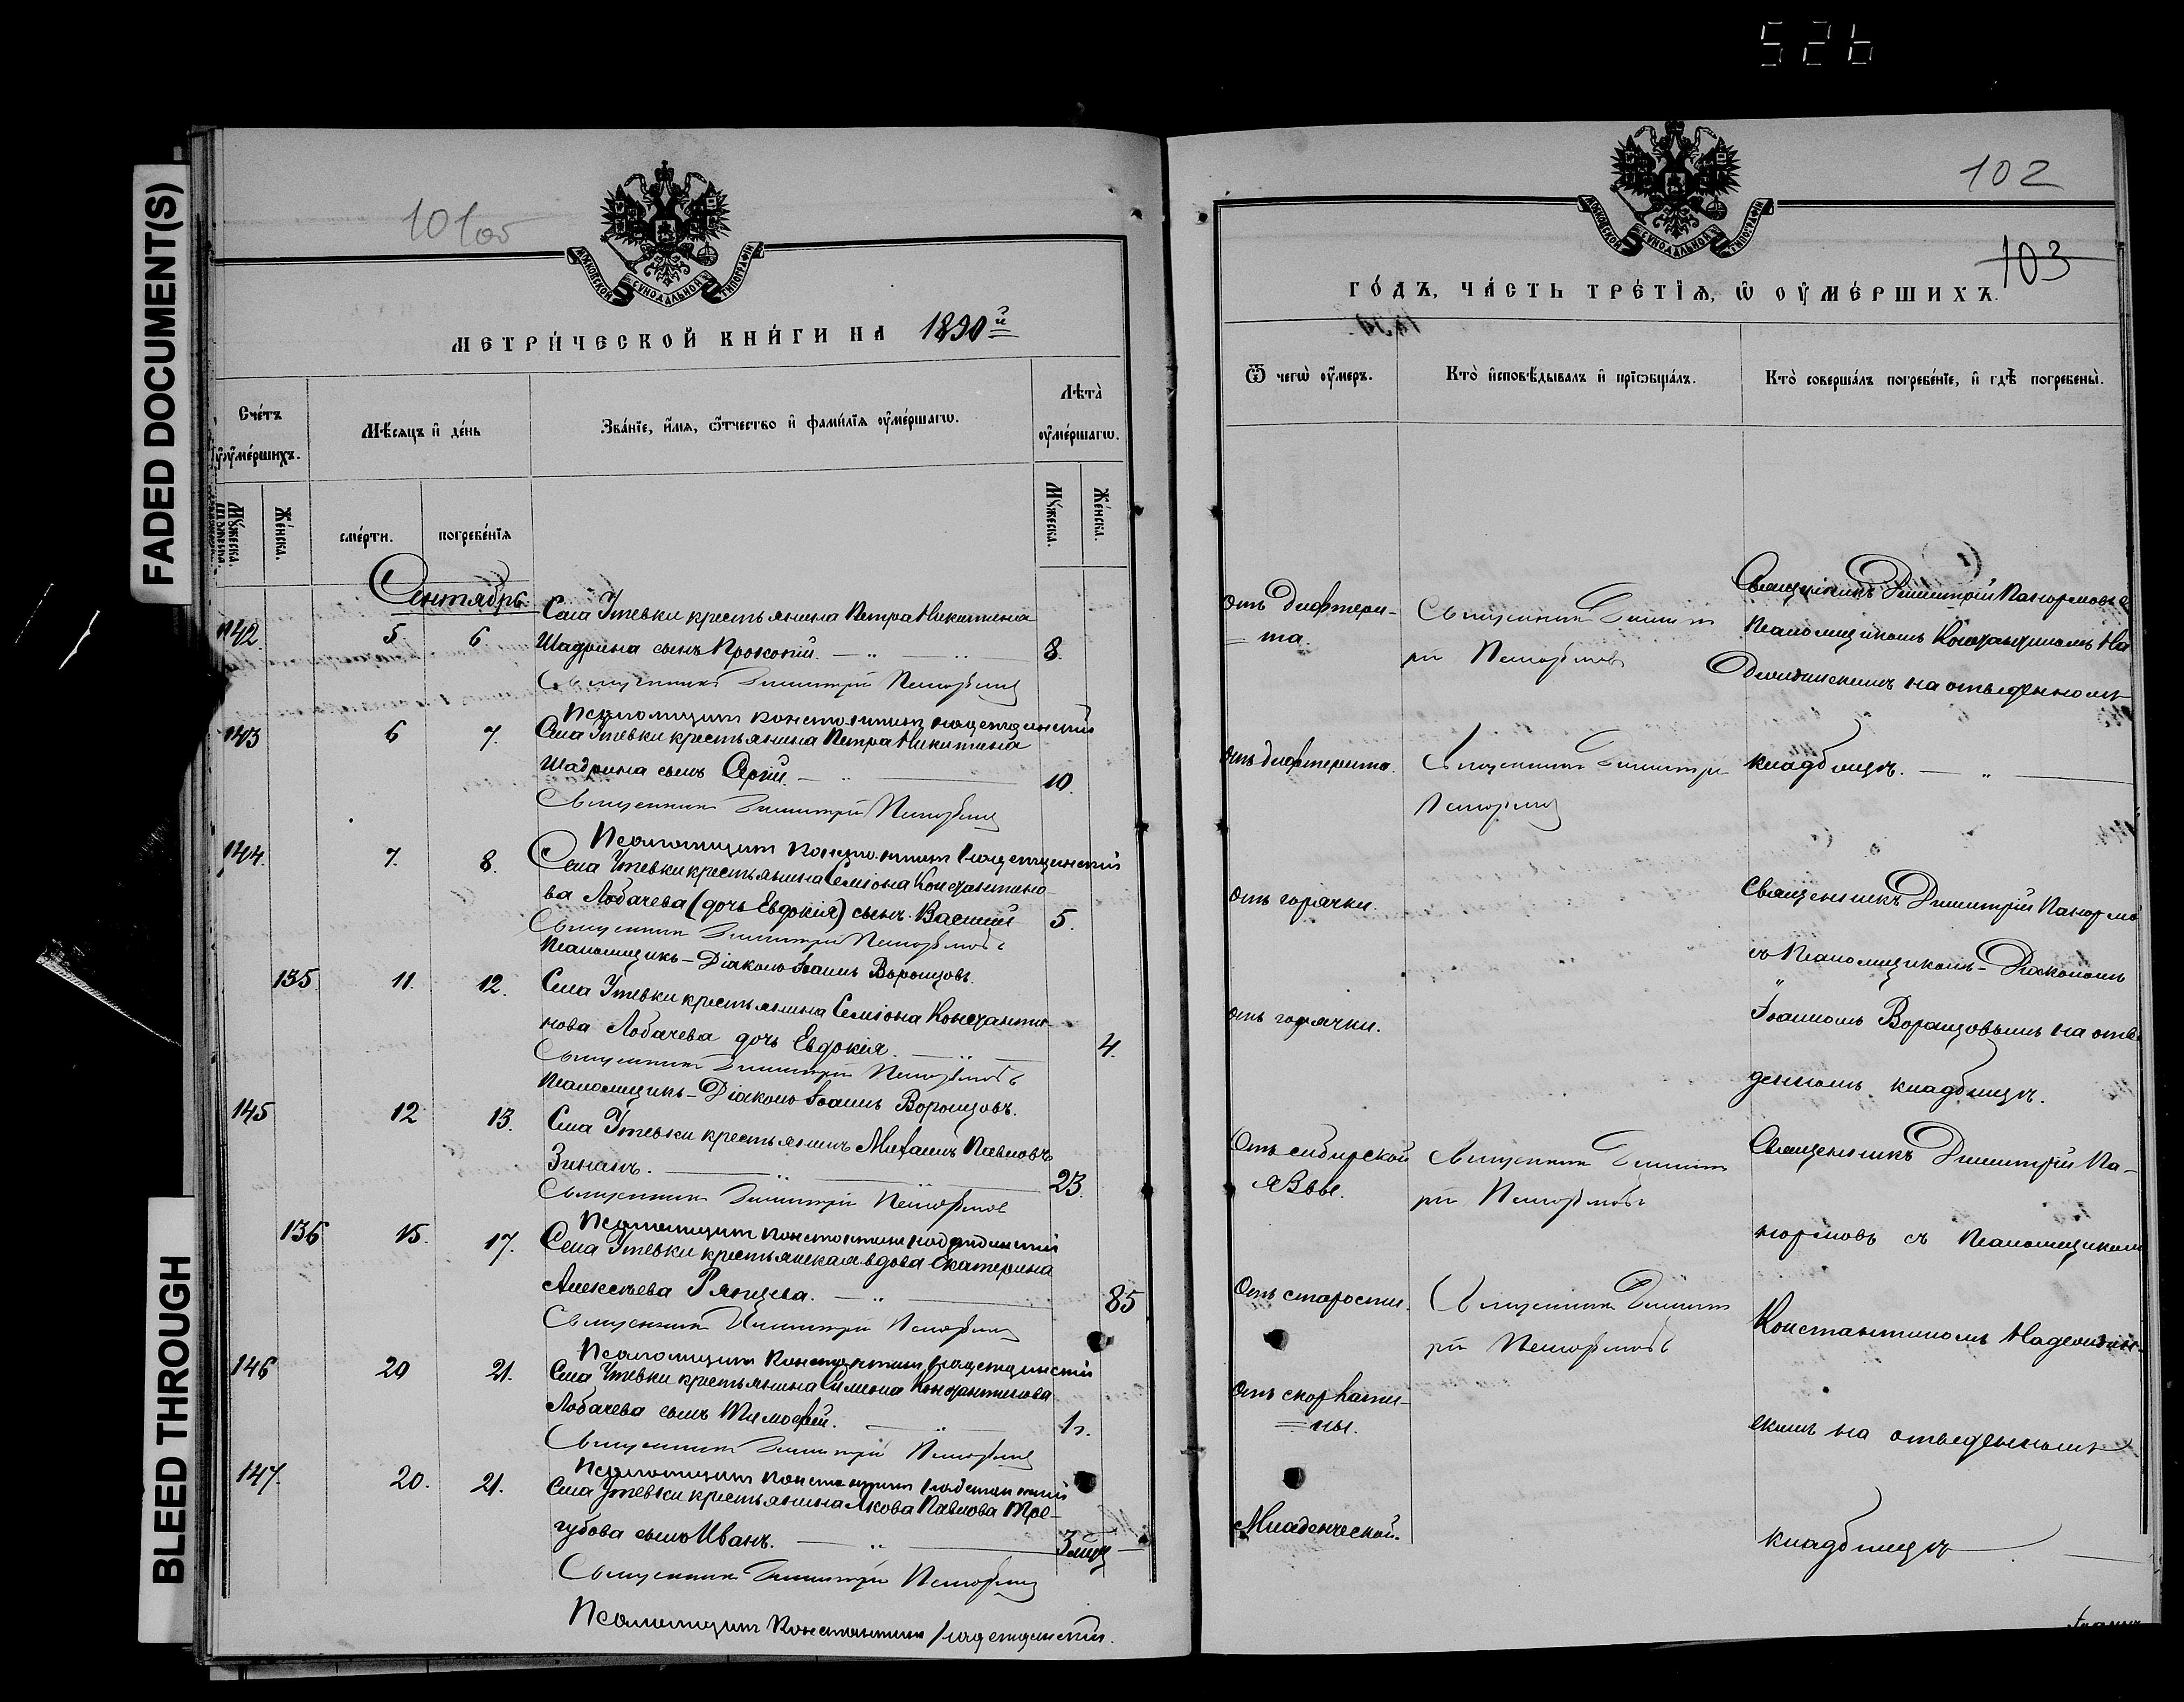 526
FADED DOCUMENT(S)
BLEED THROUGH
101об
МОСКОВСКОЙ СѴНОДАЛЬНОЙ ТИПОГРАФІИ
МЕТРИ́ЧЕСКОЙ КНИ́ГИ НА 1890й
Сче́тъ ᲂу҆ме́ршихъ.
Мѣ́сяцъ и҆ де́нь
Зва́нїе, и҆́мѧ, ѻ҆́тчество и҆ фамѝлїѧ ᲂу҆ме́ршагѡ.
Лѣта̀ ᲂу҆ме́ршагѡ.
Мꙋ́жеска.
Же́нска.
сме́рти.
погребе́нїѧ
Мꙋ́жеска.
Же́нска.
Сентябрь
Села Утевки крестьянина Петра Никитина
142. 5 6 Шадрина сынъ Прокопій. 8.
Священникъ Димитрій Панормовъ
Псаломщикъ Константинъ Надеждинскій
143 6 7. Села Утевки крестьянина Петра Никитина
Шадрина сынъ Сергій. 10.
Священникъ Димитрій Панормовъ
Псаломщикъ Константинъ Надеждинскій
144. 7. 8. Села Утевки крестьянина Семіона Константино-
ва Лобачева (дочь Евдокія) сынъ Василій 5.
Священникъ Димитрій Панормовъ
Псаломщикъ-Діаконъ Іоаннъ Воронцовъ.
135. 11. 12. Села Утевки крестьянина Семіона Константи-
нова Лобачева дочь Евдокія. 4.
Священникъ Димитрій Панормовъ
Псаломщикъ-Діаконъ Іоаннъ Воронцовъ.
145 12 13. Села Утевки крестьянинъ Михаилъ Павловъ
Зининъ. 23.
Священникъ Димитрій Панормовъ
Псаломщикъ Константинъ Надеждинскій
136 15. 17. Села Утевки крестьянская вдова Екатерина
Алексѣева Рянцева. 85
Священникъ Димитрій Панормовъ
Псаломщикъ Константинъ Надеждинскій
146 20 21. Села Утевки крестьянина Симеона Константинова
Лобачева сынъ Тимофей. 1г.
Священникъ Димитрій Панормовъ
Псаломщикъ Константинъ Надеждинскій
147. 20. 21. Села Утевки крестьянина Якова Павлова Тре-
губова сынъ Иванъ. 3 мѣс
Священникъ Димитрій Панормовъ
Псаломщикъ Константинъ Надеждинскій.
102
103
МОСКОВСКОЙ СѴНОДАЛЬНОЙ ТИПОГРАФІИ
ГО́ДЪ, ЧА́СТЬ ТРЕ́ТЇѦ, Ѡ҆ ОУ҆МЕ́РШИХЪ.
Ѿ чегѡ̀ ᲂу҆́меръ.
Кто̀ и҆сповѣ́дывалъ и҆ прїѡбща́лъ.
Кто̀ соверша́лъ погребе́нїе, и҆ гдѣ̀ погребены̀.
Отъ дифтери-
та.
Священникъ Димит
рій Панормовъ
Священникъ Димитрій Панормовъ съ
Псаломщикомъ Константиномъ На
деждинскимъ на отведенномъ
отъ дифтерита.
Священникъ Димитрій
Панормовъ
кладбищѣ.
отъ горячки.
Священникъ Димитрій Панормо
съ Псаломщикомъ-Діакономъ
отъ горячки.
Іоанномъ Воронцовымъ на отве
денномъ кладбищѣ.
Отъ сибирской
язвы.
Священникъ Димит
рій Панормовъ
Священникъ Димитрій Па-
нормовъ съ Псаломщикомъ
Отъ старости.
Священникъ Димит
рій Панормовъ
Константиномъ Надеждин-
Отъ скорлати-
ны.
скимъ на отведенномъ
Младенческой.
кладбищѣ